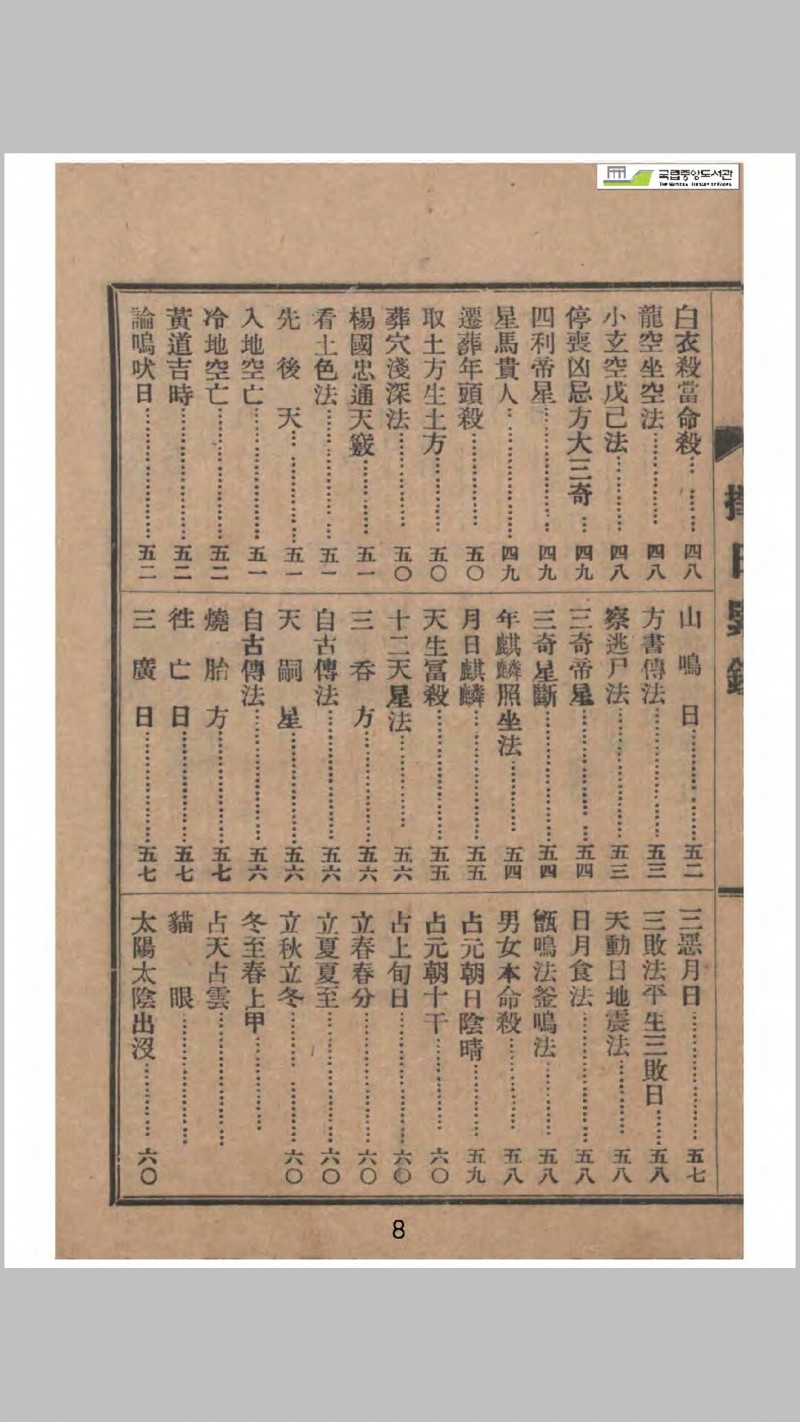 국립중앙도서관
THE NATIONAL LIBRARY OF KOREA
白衣殺當命殺……四八
龍空坐空法……四八
小玄空戊己法……四八
停喪凶忌方大三奇…四九
四利帝星……四九
星馬貴人……四九
遷葬年頭殺……五〇
取土方生土方……五〇
葬穴淺深法……五〇
楊國忠通天竅……五一
看土色法……五一
先後天……五一
入地空亡……五一
冷地空亡……五二
黃道吉時……五二
論鳴吠日……五二
山鳴日……五二
方書傳法……五三
察逃尸法……五三
三奇帝星……五四
三奇星斷……五四
年麒麟照坐法……五四
月日麒麟……五五
天生冨殺……五五
十二天星法……五六
三呑方……五六
自古傳法……五六
天嗣星……五六
自古傳法……五六
燒胎方……五七
徃亡日……五七
三廣日……五七
三惡月日……五七
三敗法平生三敗日……五八
天動日地震法……五八
日月食法……五八
甑鳴法釜鳴法……五八
男女本命殺……五八
占元朝日陰晴……五九
占元朝十干……六〇
占上旬日……六〇
立春春分……六〇
立夏夏至……六〇
立秋立冬……六〇
冬至春上甲……
占天占雲……
貓眼……
太陽太陰出沒……六〇
8